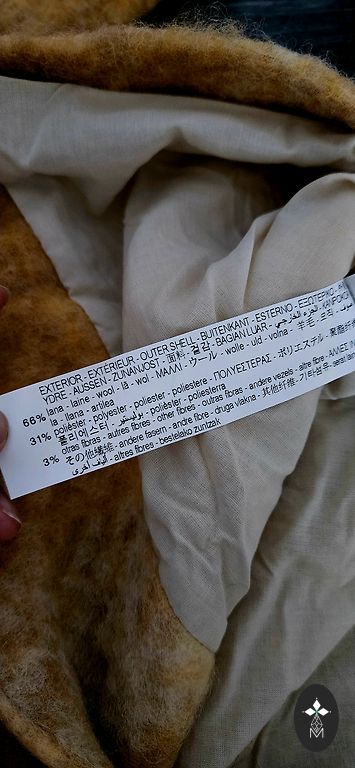 EXTERIOR - EXTÉRIEUR - OUTER SHELL - BUITENKANT - ESTERNO - ΕΞΩΤΕΡΙΚΟ
YDRE - AUSSEN - ZUNANJOST - 面料 - 겉감 - BAGIAN LUAR - الجزء الخارجي - KANPOKO
66% lana - laine - wool - lã - wol - ΜΑΛΛΙ - ウール - wolle - uld - volna - 羊毛 - 모직
la - llana - artilea
31% poliéster - polyester - poliestere - ΠΟΛΥΕΣΤΕΡΑΣ - ポリエステル
폴리에스터 - بوليستير - polièster - poliesterra
otras fibras - autres fibres - other fibres - outras fibras - andere vezels - altre fibre - ΑΛΛΕΣ
3% その他繊維 - andere fasern - andre fibre - druga vlakna - 其他纤维 - 기타섬유
ألياف أخرى - altres fibres - bestelako zuntzak
M